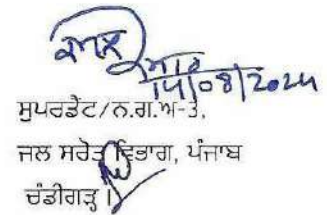 14/08/2024
ਸੁਪਰਡੈਂਟ/ਨ.ਗ.ਅ-3,
ਜਲ ਸਰੋਤ ਵਿਭਾਗ, ਪੰਜਾਬ
ਚੰਡੀਗੜ੍ਹ।